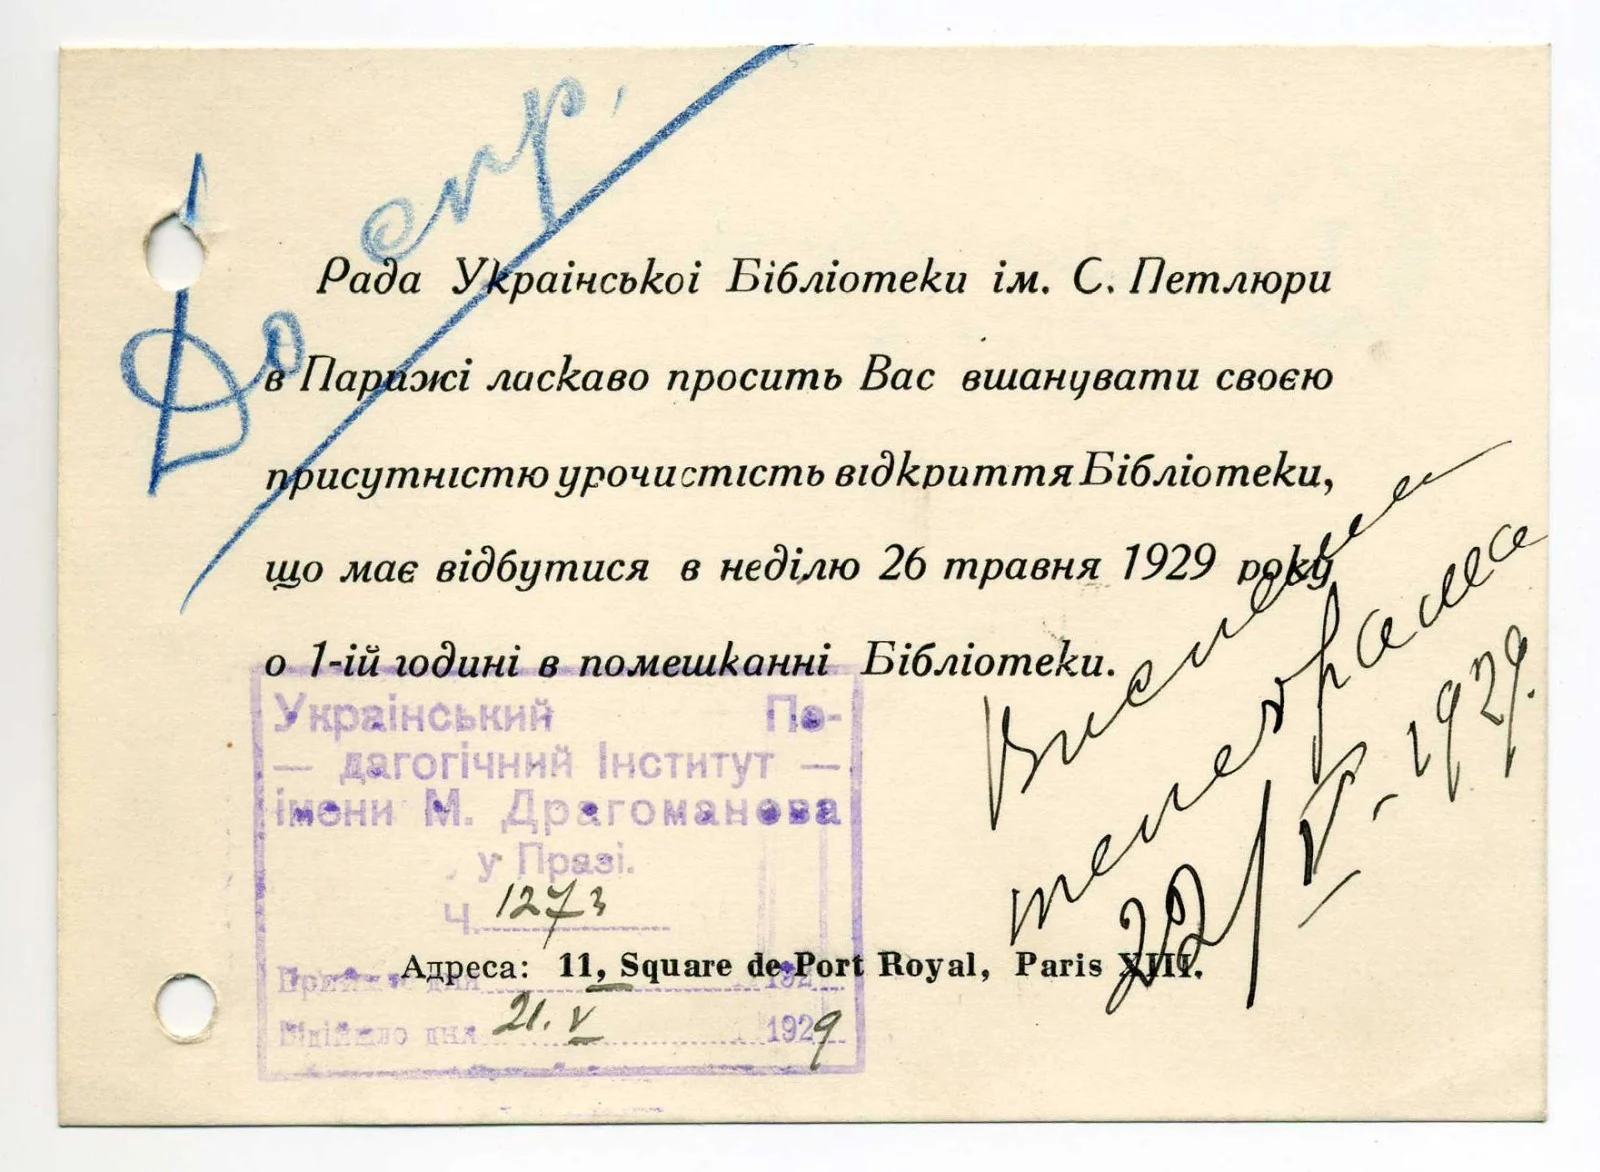 До спр.
Рада Украінськоі Бібліотеки ім. С. Петлюри
в Парижі ласкаво просить Вас вшанувати своєю
присутністю урочистість відкриття Бібліотеки,
що має відбутися в неділю 26 травня 1929 року
о 1-ій годині в помешканні Бібліотеки.
Украінський Пе-
— дагогічний Інститут —
імени М. Драгоманова
у Празі.
Ч. 1273
Адреса: 11, Square de Port Royal, Paris XIII.
Прийшло дня 192
Відійшло дня 21. V 1929
телеграма
22/V - 1929.